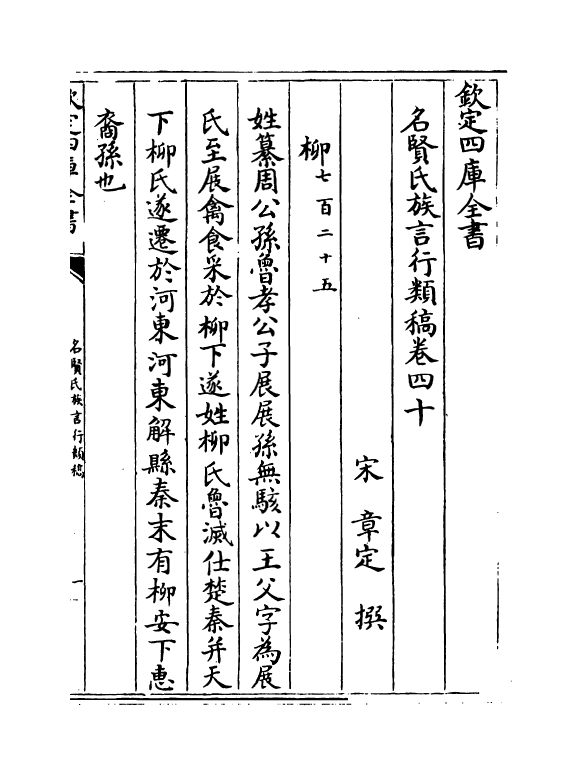 欽定四庫全書
名賢氏族言行類稿卷四十
宋 章定 撰
柳七百二十五
姓纂周公孫魯孝公子展展孫無駭以王父字為展
氏至展禽食采於柳下遂姓柳氏魯滅仕楚秦并天
下柳氏遂遷於河東河東解縣秦末有柳安下惠
裔孫也
欽定四庫全書
名賢氏族言行類稿
一